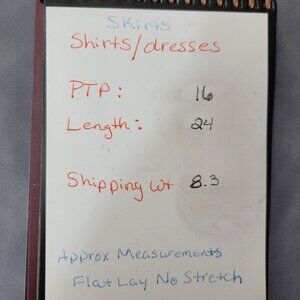 Skirts
Shirts/dresses
PTP: 16
Length: 24
Shipping wt 8.3
Approx Measurements
Flat Lay No Stretch